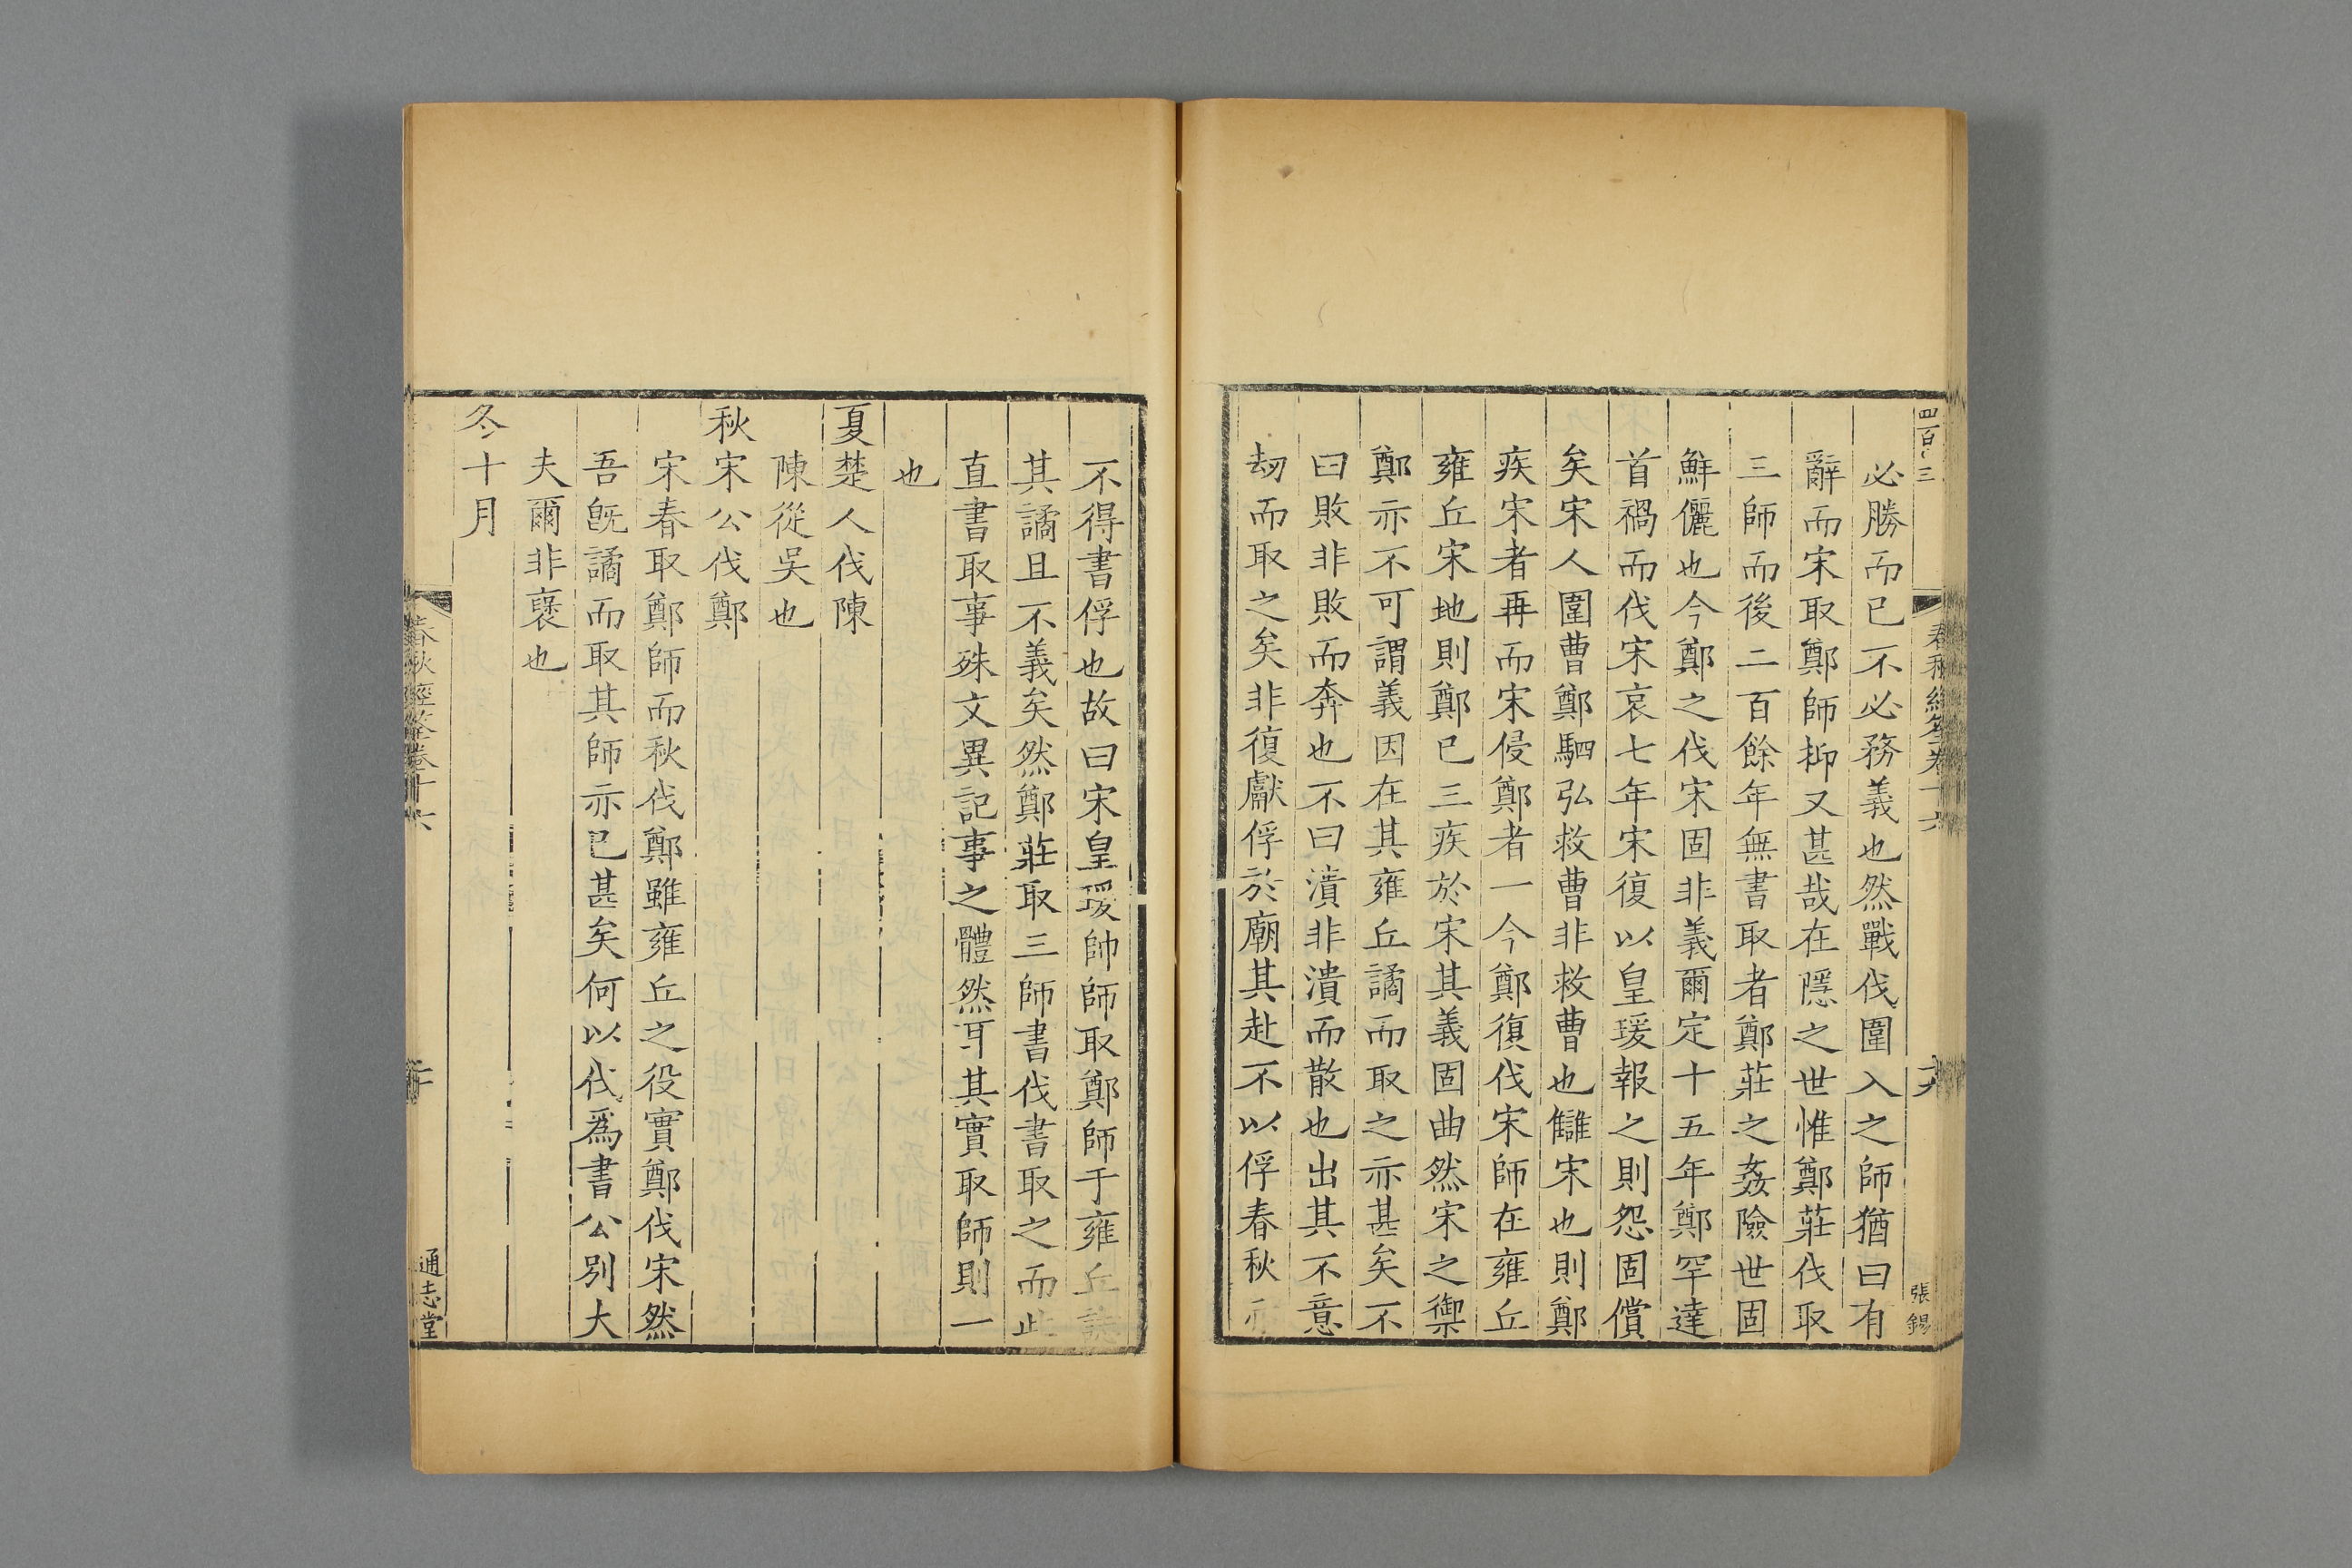 四百三
春秋經筌卷十六
十九
張錫
必勝而已不必務義也然戰伐圍入之師猶曰有
辭而宋取鄭師抑又甚哉在隱之世惟鄭莊伐取
三師而後二百餘年無書取者鄭莊之姦險世固
鮮儷也今鄭之伐宋固非義爾定十五年鄭罕達
首禍而伐宋哀七年宋復以皇瑗報之則怨固償
矣宋人圍曹鄭駟弘救曹非救曹也讎宋也則鄭
疾宋者再而宋侵鄭者一今鄭復伐宋師在雍丘
雍丘宋地則鄭已三疾於宋其義固曲然宋之禦
鄭亦不可謂義因在其雍丘譎而取之亦甚矣不
曰敗非敗而奔也不曰潰非潰而散也出其不意
刼而取之矣非復獻俘於廟其赴不以俘春秋亦
不得書俘也故曰宋皇瑗帥師取鄭師于雍丘誌
其譎且不義矣然鄭莊取三師書伐書取之而此
直書取事殊文異記事之體然耳其實取師則一
也
夏楚人伐陳
陳從吳也
秋宋公伐鄭
宋春取鄭師而秋伐鄭雖雍丘之役實鄭伐宋然
吾旣譎而取其師亦已甚矣何以伐爲書公別大
夫爾非襃也
冬十月
春秋經筌卷十六
二十
通志堂